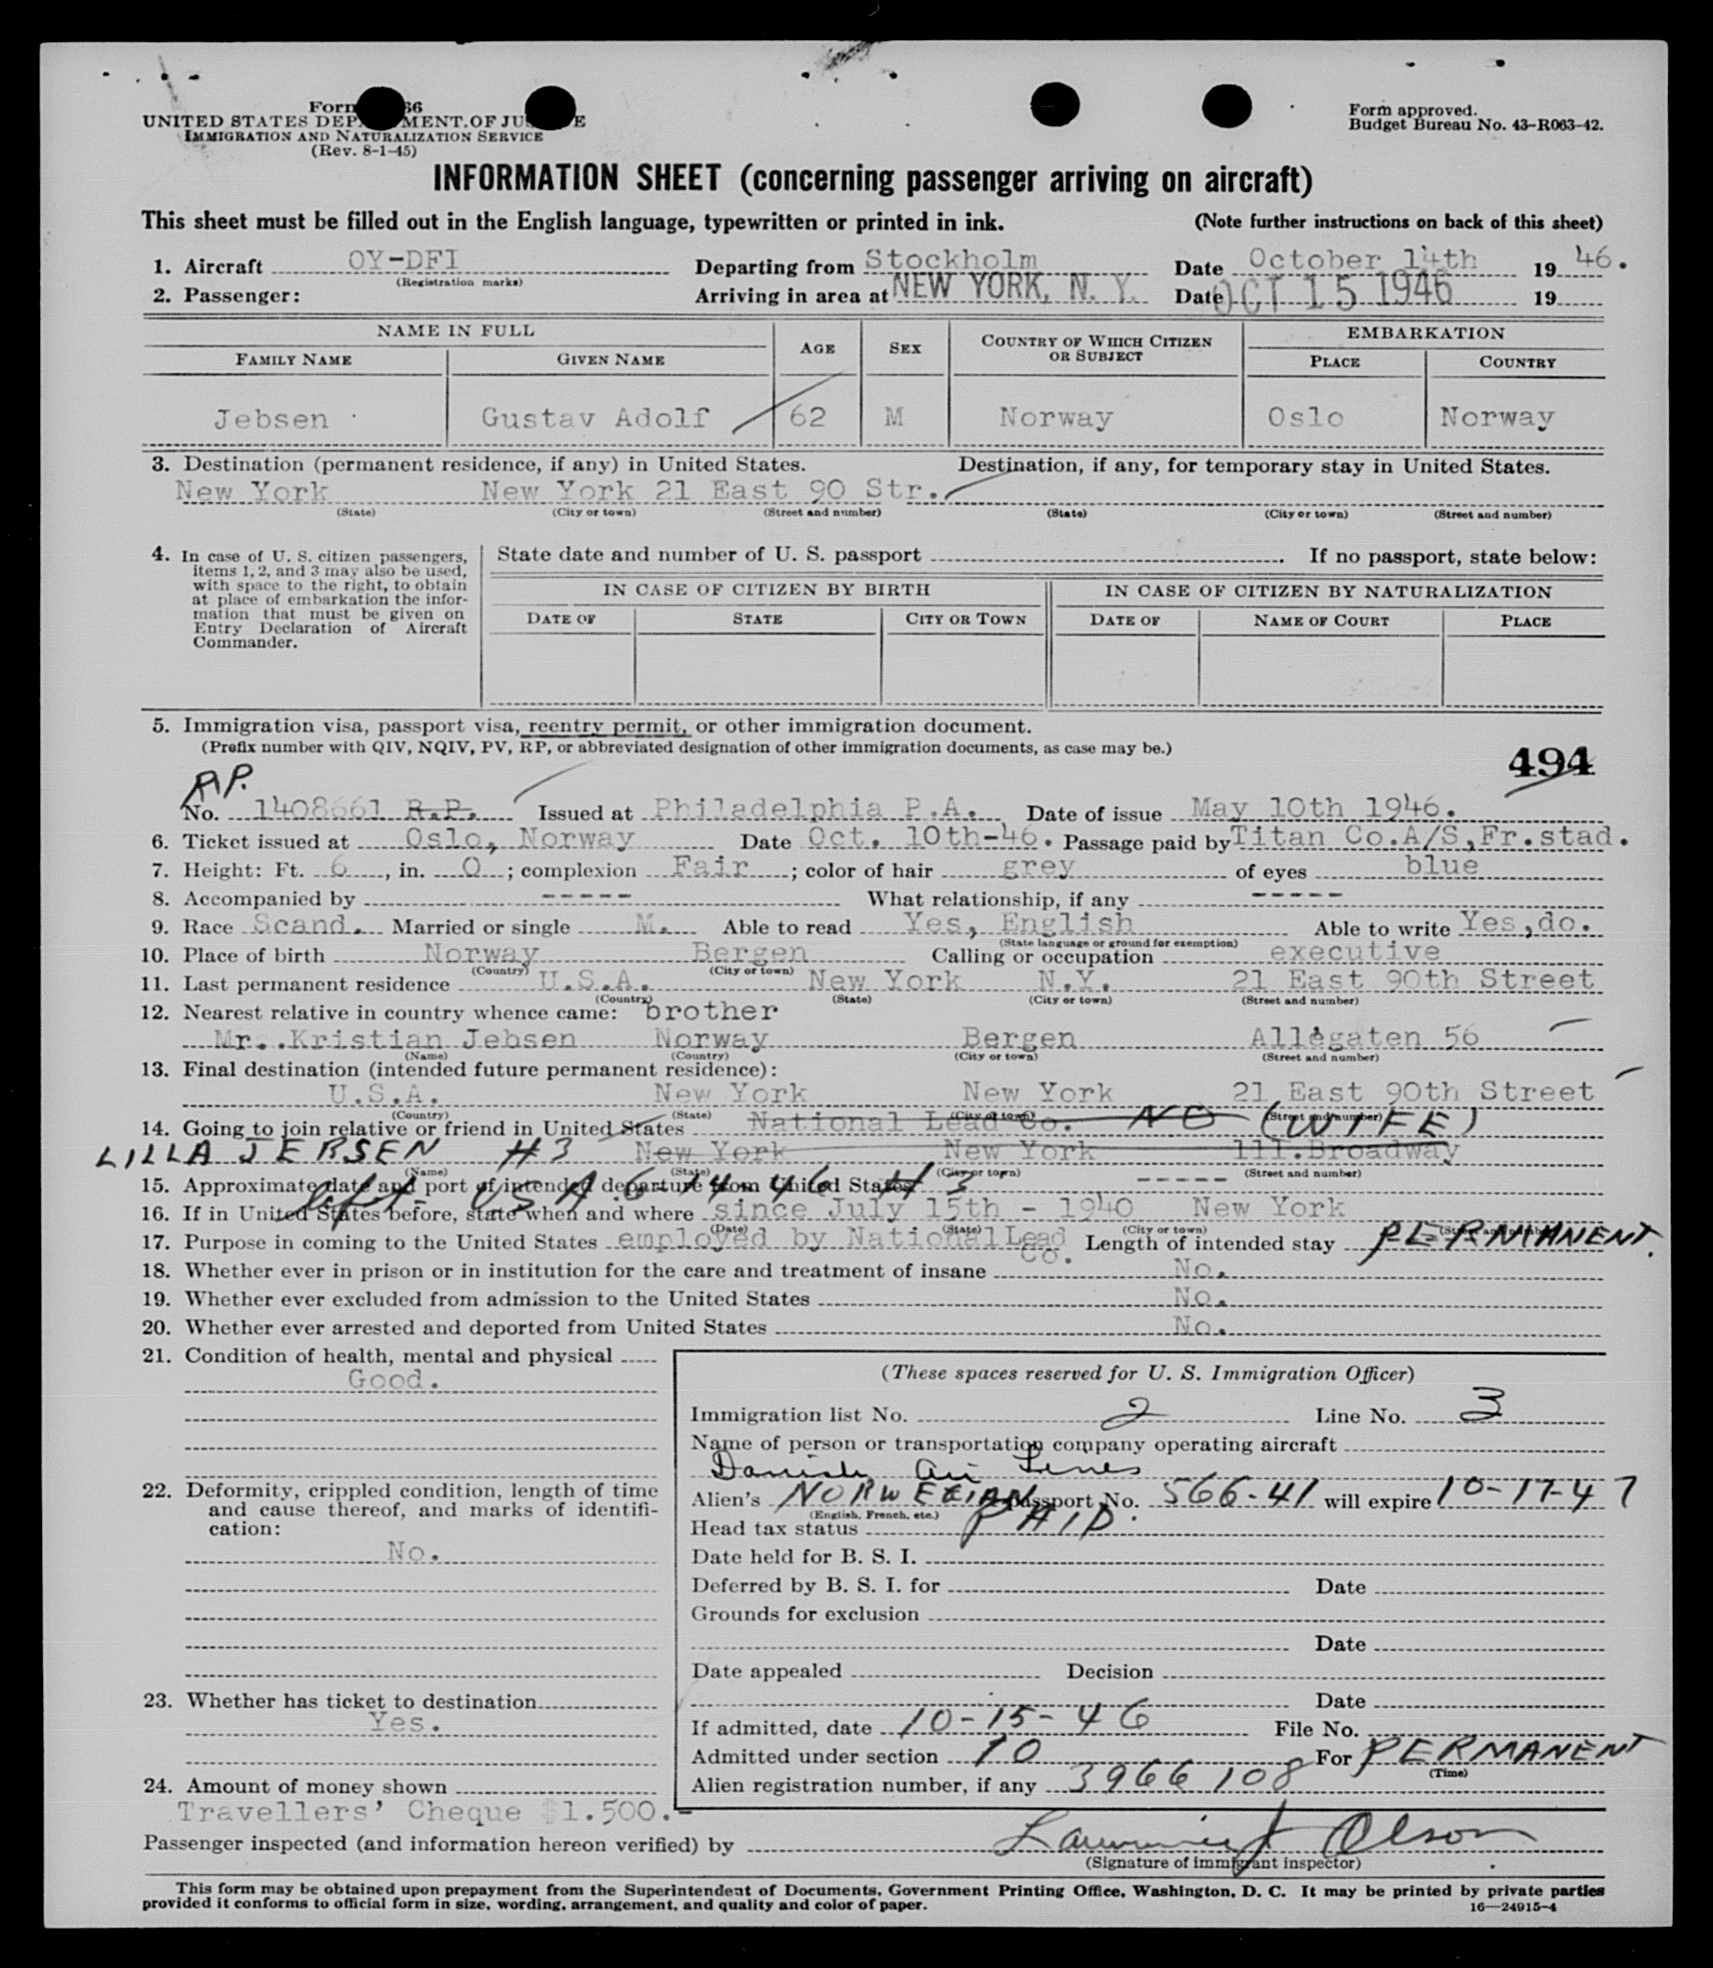 Form 66
UNITED STATES DEP MENT OF JU E
IMMIGRATION AND NATURALIZATION SERVICE
(Rev. 8-1-45)
Form approved.
Budget Bureau No. 43-R063-42.
INFORMATION SHEET (concerning passenger arriving on aircraft)
This sheet must be filled out in the English language, typewritten or printed in ink. (Note further instructions on back of this sheet)
1. Aircraft OY-DFI Departing from Stockholm Date October 14th 19 46.
(Registration marks)
2. Passenger: Arriving in area at NEW YORK, N. Y. Date OCT 15 1946 19
NAME IN FULL AGE SEX COUNTRY OF WHICH CITIZEN OR SUBJECT EMBARKATION
FAMILY NAME GIVEN NAME PLACE COUNTRY
Jebsen Gustav Adolf 62 M Norway Oslo Norway
3. Destination (permanent residence, if any) in United States. Destination, if any, for temporary stay in United States.
New York New York 21 East 90 Str.
(State) (City or town) (Street and number) (State) (City or town) (Street and number)
4. In case of U. S. citizen passengers, items 1, 2, and 3 may also be used, with space to the right, to obtain at place of embarkation the information that must be given on Entry Declaration of Aircraft Commander.
State date and number of U. S. passport If no passport, state below:
IN CASE OF CITIZEN BY BIRTH IN CASE OF CITIZEN BY NATURALIZATION
DATE OF STATE CITY OR TOWN DATE OF NAME OF COURT PLACE
5. Immigration visa, passport visa, reentry permit, or other immigration document.
(Prefix number with QIV, NQIV, PV, RP, or abbreviated designation of other immigration documents, as case may be.)
494
RP.
No. 1408661 R.P. Issued at Philadelphia P.A. Date of issue May 10th 1946.
6. Ticket issued at Oslo, Norway Date Oct. 10th-46. Passage paid by Titan Co.A/S,Fr.stad.
7. Height: Ft. 6, in. 0; complexion Fair; color of hair grey of eyes blue
8. Accompanied by ----- What relationship, if any -----
9. Race Scand. Married or single M. Able to read Yes, English Able to write Yes,do.
(State language or ground for exemption)
10. Place of birth Norway Bergen Calling or occupation executive
(Country) (City or town)
11. Last permanent residence U.S.A. New York N.Y. 21 East 90th Street
(Country) (State) (City or town) (Street and number)
12. Nearest relative in country whence came: brother
Mr. Kristian Jebsen Norway Bergen Allégaten 56
(Name) (Country) (City or town) (Street and number)
13. Final destination (intended future permanent residence):
U.S.A. New York New York 21 East 90th Street
(Country) (State) (City or town) (Street and number)
14. Going to join relative or friend in United States National Lead Co. NO (WIFE)
LILLA JEBSEN #3 New York New York 111.Broadway
(Name) (State) (City or town) (Street and number)
15. Approximate date and port of intended departure from United States -----
left USA 6-14-46 #3
16. If in United States before, state when and where since July 15th - 1940 New York
(Date) (State) (City or town) (Street and number)
17. Purpose in coming to the United States employed by National Lead Co. Length of intended stay PERMANENT.
18. Whether ever in prison or in institution for the care and treatment of insane No.
19. Whether ever excluded from admission to the United States No.
20. Whether ever arrested and deported from United States No.
21. Condition of health, mental and physical
Good.
22. Deformity, crippled condition, length of time and cause thereof, and marks of identification:
No.
23. Whether has ticket to destination
Yes.
24. Amount of money shown
Travellers' Cheque $1.500.-
(These spaces reserved for U. S. Immigration Officer)
Immigration list No. 2 Line No. 3
Name of person or transportation company operating aircraft
Danish Air Lines
Alien's NORWEGIAN passport No. 566-41 will expire 10-17-47
(English, French, etc.)
Head tax status PAID.
Date held for B. S. I.
Deferred by B. S. I. for Date
Grounds for exclusion
Date
Date appealed Decision
Date
If admitted, date 10-15-46 File No.
Admitted under section 10 For PERMANENT
(Time)
Alien registration number, if any 3966108
Passenger inspected (and information hereon verified) by Lawrence J Olson
(Signature of immigrant inspector)
This form may be obtained upon prepayment from the Superintendent of Documents, Government Printing Office, Washington, D. C. It may be printed by private parties
provided it conforms to official form in size, wording, arrangement, and quality and color of paper. 16—24915-4